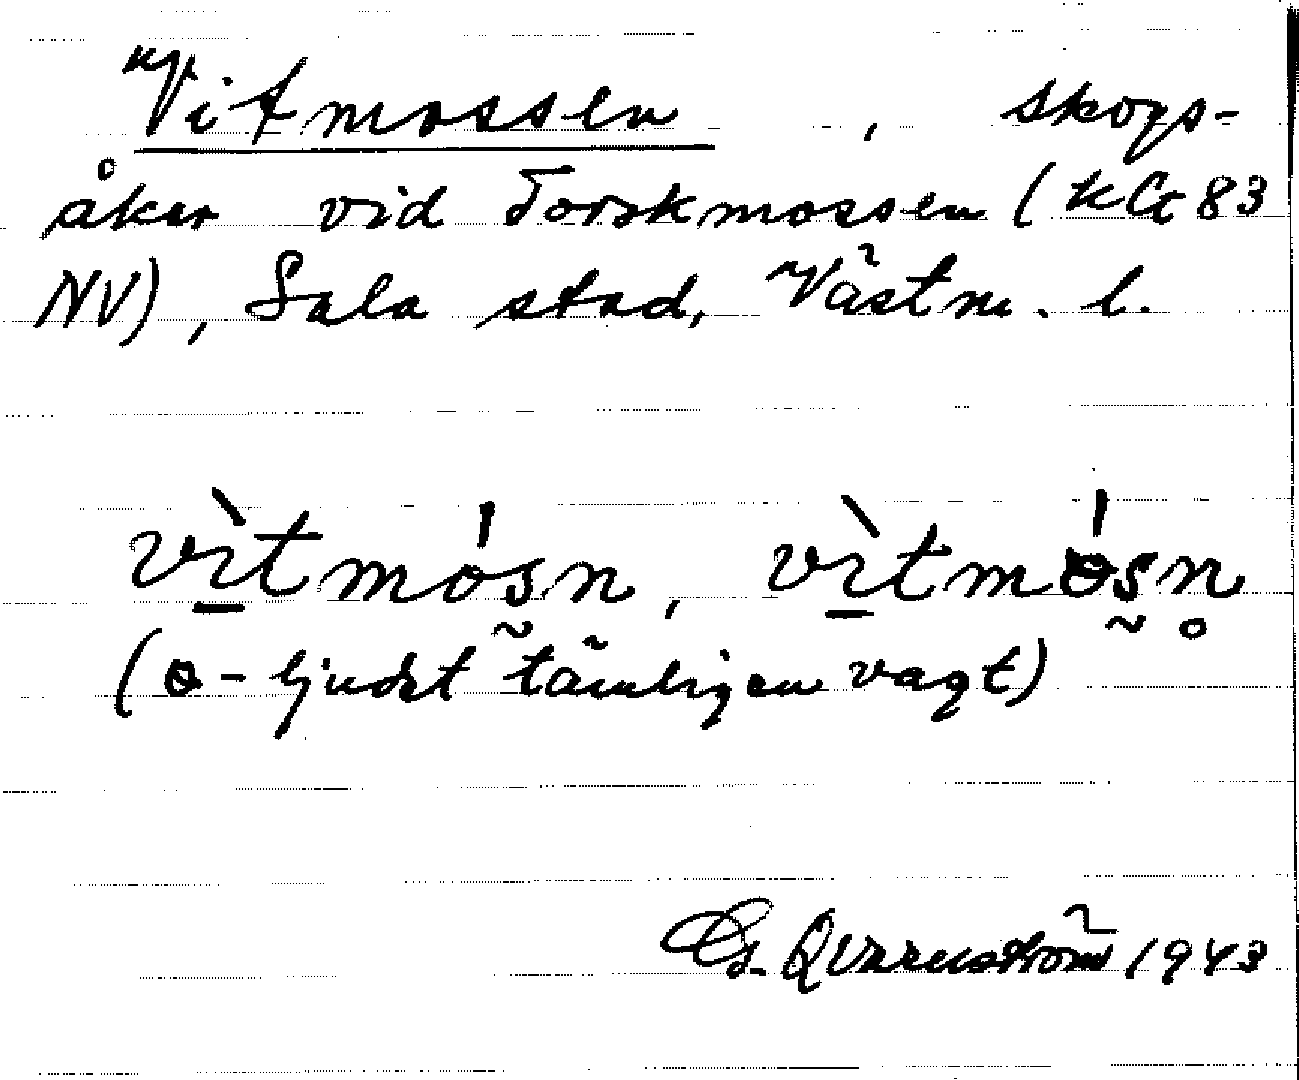 Vitmossen, skogs-
åker vid Torskmossen (kbl 83
NV), Sala stad, Västm. l.
vì̱tmós̰n, vì̱tmɵ́s̰n̥
(ɵ-ljudet tämligen vagt)
G. Qvarnström 1943